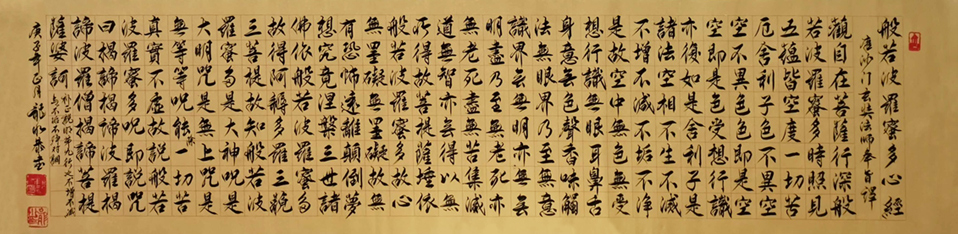 般若波羅蜜多心經
唐沙门玄奘法師奉旨譯
觀自在菩薩行深般
若波羅蜜多時照見
五蕴皆空度一切苦
厄舍利子色不異空
空不異色色即是空
空即是色受想行識
亦復如是舍利子是
諸法空相不生不滅
不增不減不垢不淨
是故空中無色無受
想行識無眼耳鼻舌
身意無色聲香味觸
法無眼界乃至無意
識界無無明亦無無
明盡乃至無老死亦
無老死盡無苦集滅
道無智亦無得以無
所得故菩提薩埵依
般若波羅蜜多故心
無罣礙無罣礙故無
有恐怖遠離顛倒夢
想究竟涅槃三世諸
佛依般若波羅蜜多
故得阿耨多羅三藐
三菩提故知般若波
羅蜜多是大神咒是
大明咒是無上咒是
無等等咒能除一切苦
真實不虛故説般若
波羅蜜多咒即説咒
曰揭諦揭諦波羅揭
諦波羅僧揭諦菩提
薩婆訶
庚子年正月